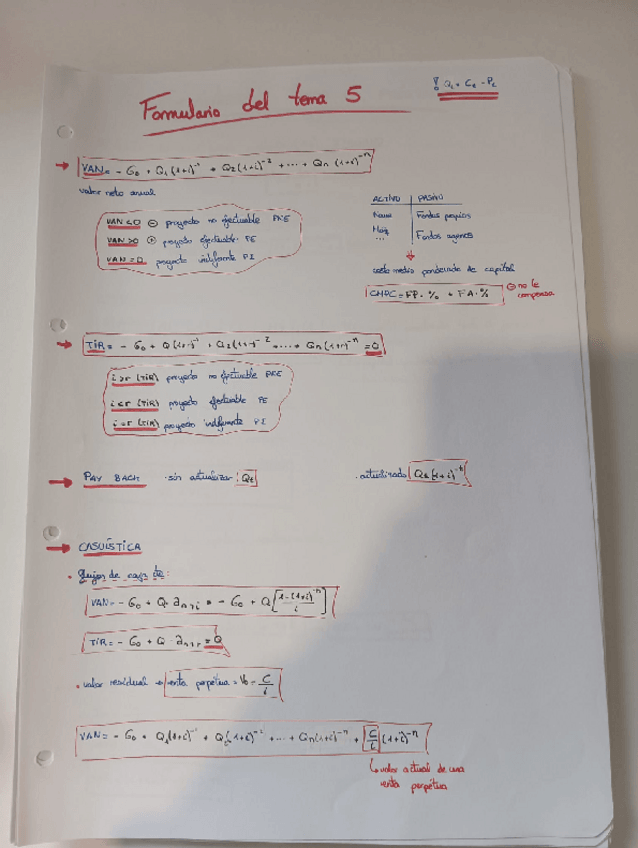 Formulario del tema 5
! Qt = Ct - Pt
→ VAN = - G0 + Q1 (1+i)^-1 + Q2 (1+i)^-2 + ... + Qn (1+i)^-n
valor neto anual
VAN < 0 ⊖ proyecto no efectuable PNE
VAN > 0 ⊕ proyecto efectuable PE
VAN = 0 proyecto indiferente PI
ACTIVO | PASIVO
Fondos propios
Maq
... Fondos ajenos
↓
coste medio ponderado de capital
CMPC = FP · % + FA · %
⊖ no le
compensa
→ TIR = - G0 + Q (1+r)^-1 + Q2 (1+r)^-2 + ... + Qn (1+r)^-n = 0
i > r (TIR) proyecto no efectuable PNE
i < r (TIR) proyecto efectuable PE
i = r (TIR) proyecto indiferente PI
→ PAY BACK · sin actualizar: Qt
· actualizado Qt (1+i)^-t
→ CASUÍSTICA
• flujos de caja cte:
VAN = - G0 + Q · an¬i = - G0 + Q [1-(1+i)^-n / i]
TIR = - G0 + Q · an¬r = 0
• valor residual → renta perpétua = V0 = C/i
VAN = - G0 + Q1 (1+i)^-1 + Q2 (1+i)^-2 + ... + Qn (1+i)^-n + C/i (1+i)^-n
↳ valor actual de una
renta perpétua